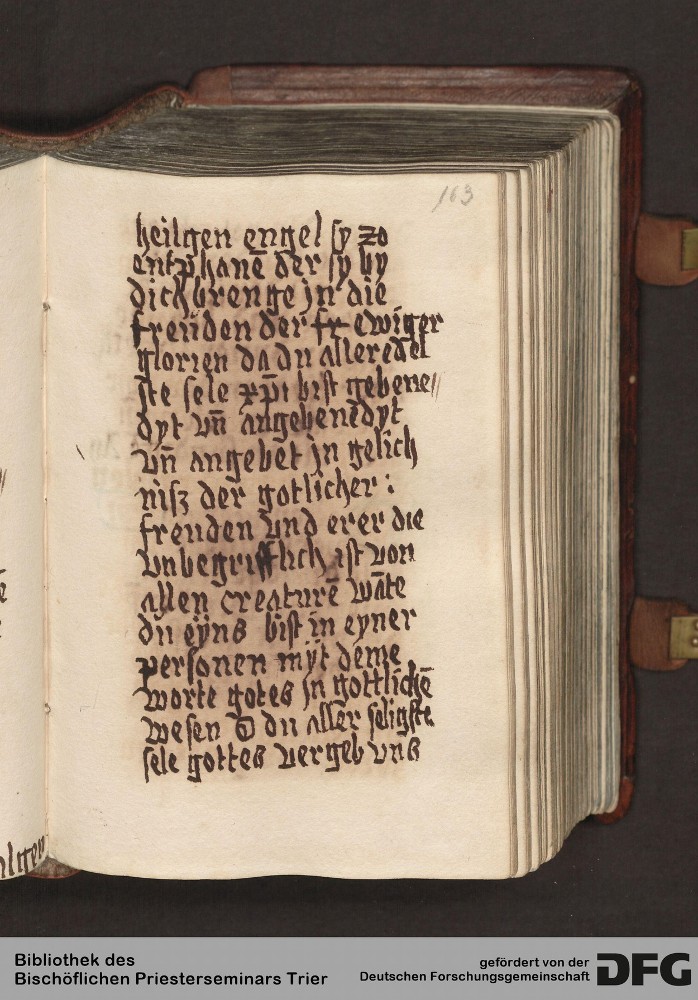 163
heilgen engel sy zo
entphanē der sy by
dich brenge jn die
freuden der fr ewiger
glorien da du alleredel
ste sele xp̄i bist gebene
dyt vn̄ angebenedyt
vn̄ angebet jn gelich
nisz der gotlicher :
freuden vnd erer die
vnbegrifflich ist von
allen creaturē wāte
du eyns bist in eyner
personen myt deme
worte gotes jn gottlichē
wesen O du aller seligste
sele gottes vergeb vns
Bibliothek des
Bischöflichen Priesterseminars Trier
gefördert von der
Deutschen Forschungsgemeinschaft
DFG